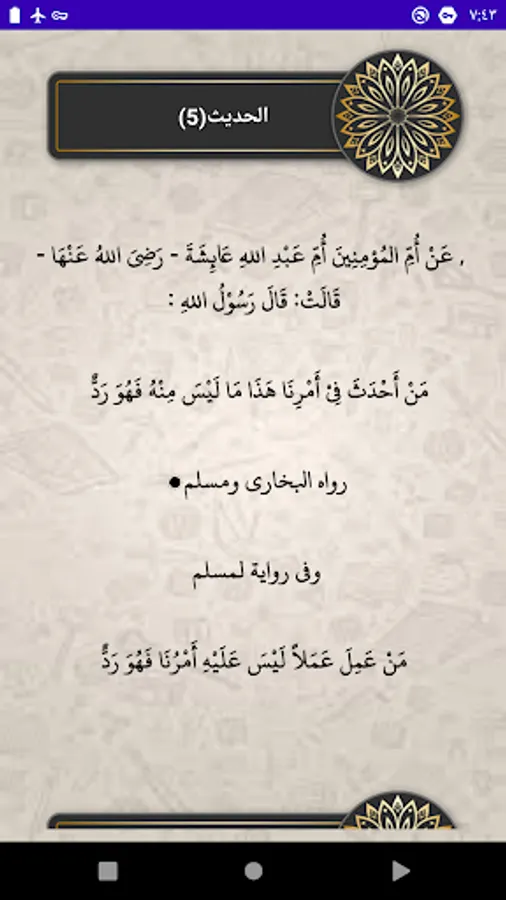 ٧:٤٣
الحديث(5)
, عَنْ أُمِّ المُؤمِنِينَ أُمِّ عَبْدِ اللهِ عَايِشَةَ - رَضِىَ اللهُ عَنْهَا -
قَالَتْ: قَالَ رَسُوْلُ اللهِ :
مَنْ أَحْدَثَ فِىْ أَمْرِنَا هَذَا مَا لَيْسَ مِنْهُ فَهُوَ رَدٌّ
رواه البخارى ومسلم●
وفى رواية لمسلم
مَنْ عَمِلَ عَمَلاً لَيْسَ عَلَيْهِ أَمْرُنَا فَهُوَ رَدٌّ